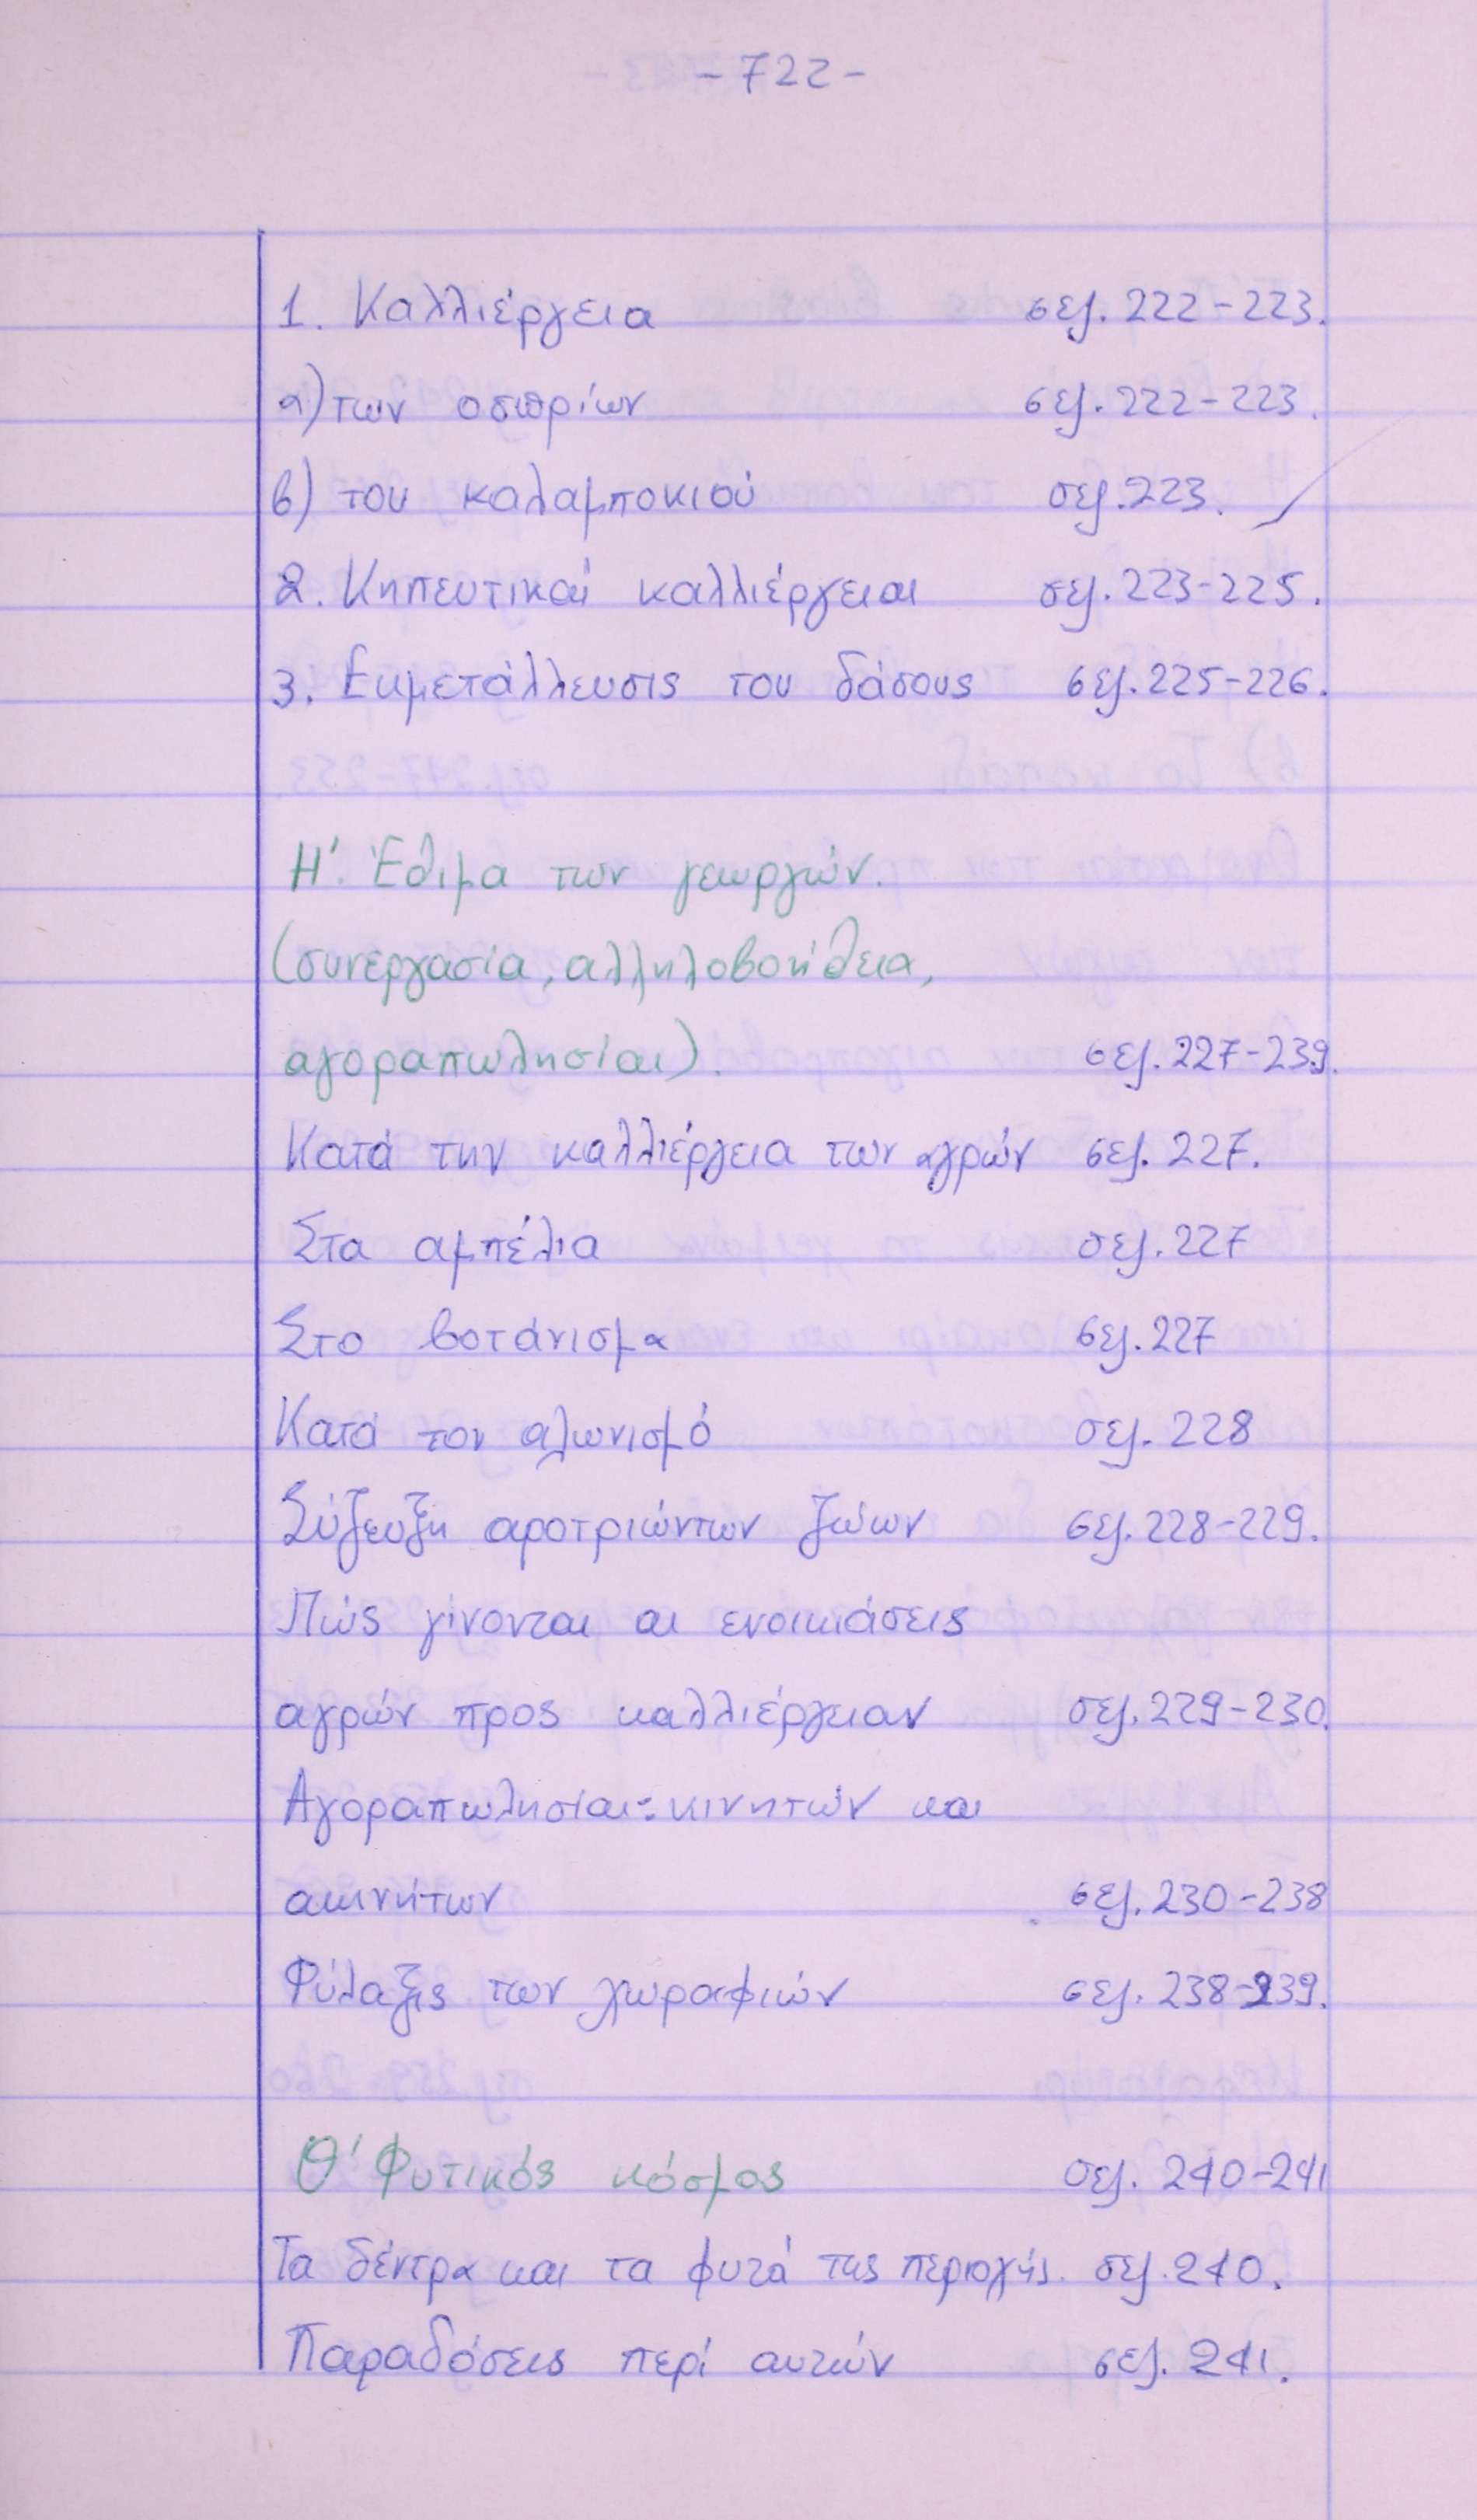 - 722 -
1. Καλλιέργεια σελ. 222-223.
α) των οσπρίων σελ. 222-223.
β) του καλαμποκιού σελ. 223.
2. Κηπευτικαί καλλιέργειαι σελ. 223-225.
3. Εκμετάλλευσις του δάσους σελ. 225-226.
Η'. Έθιμα των γεωργών.
(συνεργασία, αλληλοβοήθεια,
αγοραπωλησίαι). σελ. 227-239.
Κατά την καλλιέργεια των αγρών σελ. 227.
Στα αμπέλια σελ. 227
Στο βοτάνισμα σελ. 227
Κατά τον αλωνισμό σελ. 228
Σύζευξη αροτριώντων ζώων σελ. 228-229.
Πώς γίνονται αι ενοικιάσεις
αγρών προς καλλιέργειαν σελ. 229-230.
Αγοραπωλησίαι: κινητών και
ακινήτων σελ. 230-238
Φύλαξις των χωραφιών σελ. 238-239.
Θ' Φυτικός κόσμος σελ. 240-241
Τα δέντρα και τα φυτά της περιοχής. σελ. 240.
Παραδόσεις περί αυτών σελ. 241.